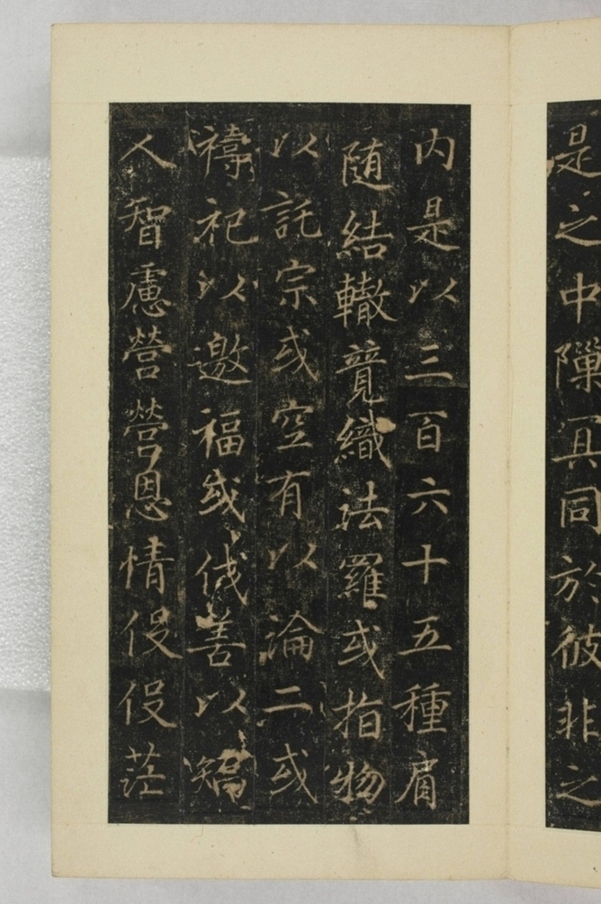 是之中隟冥同於彼非之
内是以三百六十五種肩
随結轍竟織法羅或指物
以託宗或空有以淪二或
禱祀以邀福或伐善以矯
人智慮營營恩情役役茫